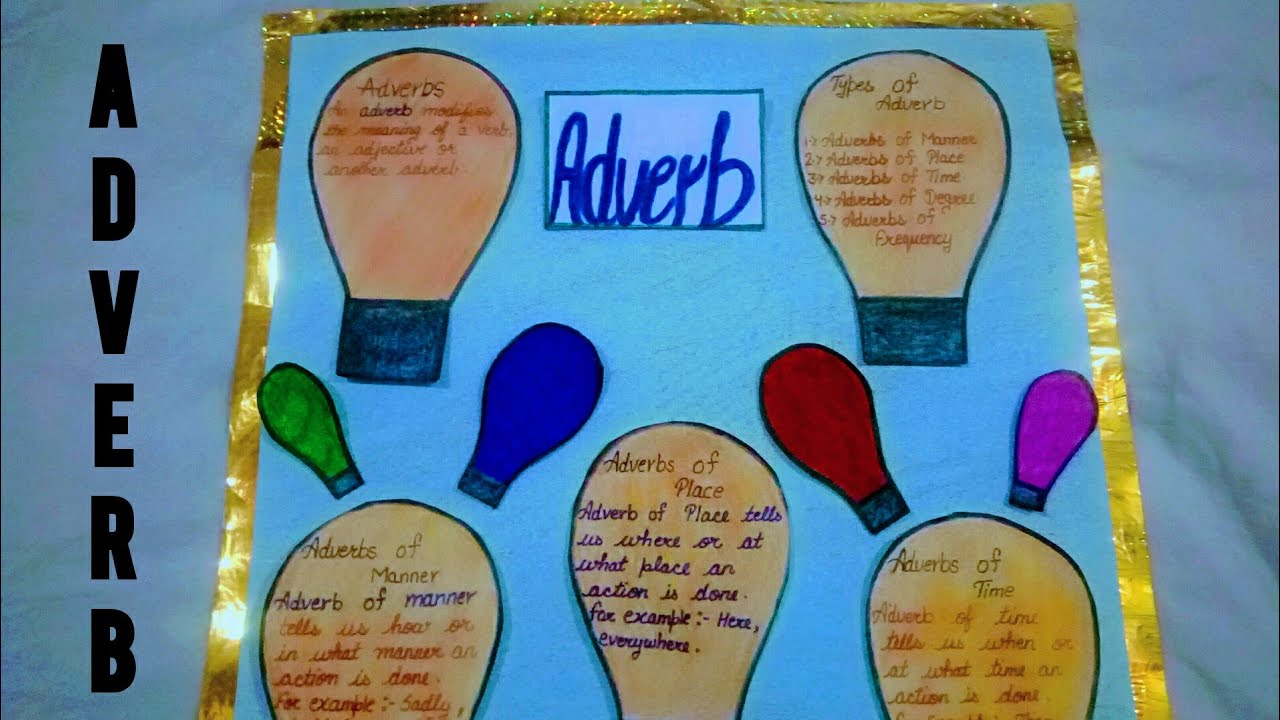 ADVERB
Adverbs
An adverb modifies
the meaning of a verb,
an adjective or
another adverb.
Adverb
Types of
Adverb
1→ Adverbs of Manner
2→ Adverbs of Place
3→ Adverbs of Time
4→ Adverbs of Degree
5→ Adverbs of
frequency
Adverbs of
Manner
Adverb of manner
tells us how or
in what manner an
action is done.
for example:- Sadly,
Adverbs of
Place
Adverb of Place tells
us where or at
what place an
action is done.
for example:- Here,
everywhere.
Adverbs of
Time
Adverb of time
tells us when or
at what time an
action is done.